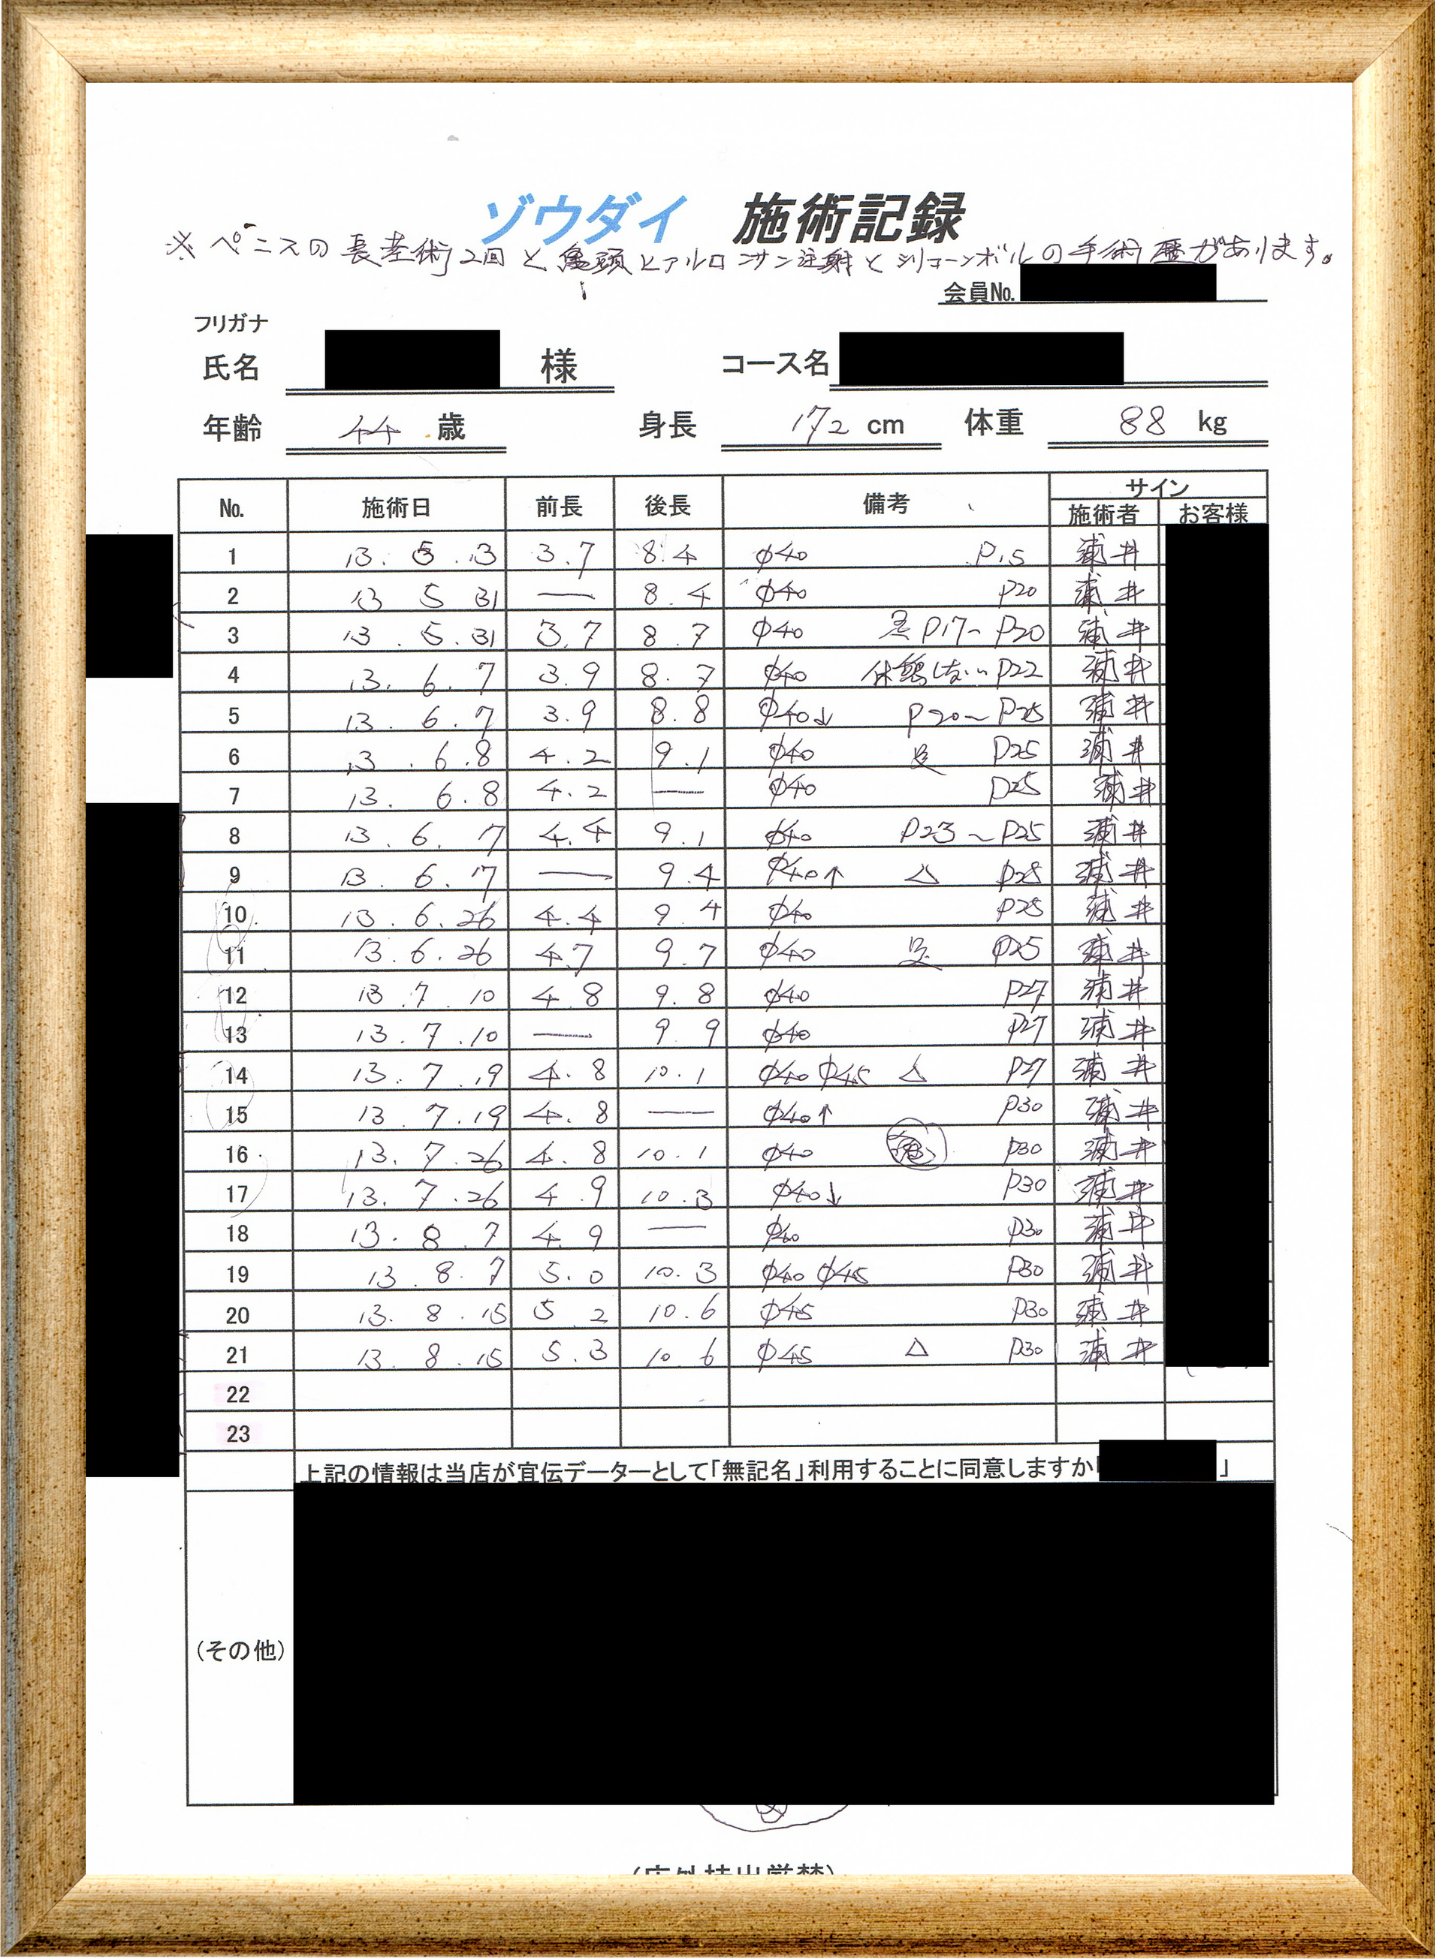 ゾウダイ 施術記録
※ペニスの長茎術2回と亀頭ヒアルロンサン注射とシリコーンボールの手術歴があります。
会員No.
フリガナ
氏名 様 コース名
年齢 44 歳 身長 172 cm 体重 88 kg
No. 施術日 前長 後長 備考 サイン
施術者 お客様
1 13. 5. 13 3.7 8.4 φ40 P15 浦井
2 13 5 31 — 8.4 φ40 P20 浦井
3 13. 5. 31 3.7 8.7 φ40 P17~P20 浦井
4 13. 6. 7 3.9 8.7 φ40 休憩しない P22 浦井
5 13. 6. 7 3.9 8.8 φ40↓ P20~P25 浦井
6 13. 6.8 4.2 9.1 φ40 P25 浦井
7 13. 6.8 4.2 — φ40 P25 浦井
8 13. 6. 17 4.4 9.1 φ40 P23~P25 浦井
9 13. 6. 17 — 9.4 φ40↑ △ P25 浦井
10 13. 6.26 4.4 9.4 φ40 P25 浦井
11 13.6.26 4.7 9.7 φ40 P25 浦井
12 13.7.10 4.8 9.8 φ40 P27 浦井
13 13.7.10 — 9.9 φ40 P27 浦井
14 13.7.19 4.8 10.1 φ40 φ45 △ P27 浦井
15 13.7.19 4.8 — φ40↑ P30 浦井
16 13.7.26 4.8 10.1 φ40 P30 浦井
17 13.7.26 4.9 10.3 φ40↓ P30 浦井
18 13.8.7 4.9 — φ40 P30 浦井
19 13.8.7 5.0 10.3 φ40 φ45 P30 浦井
20 13.8.15 5.2 10.6 φ45 P30 浦井
21 13.8.15 5.3 10.6 φ45 △ P30 浦井
22
23
上記の情報は当店が宣伝データーとして「無記名」利用することに同意しますか「 」
(その他)
(店外持出厳禁)